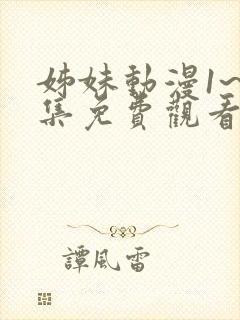 姊妹動漫1~
集免費觀看
譚風雷